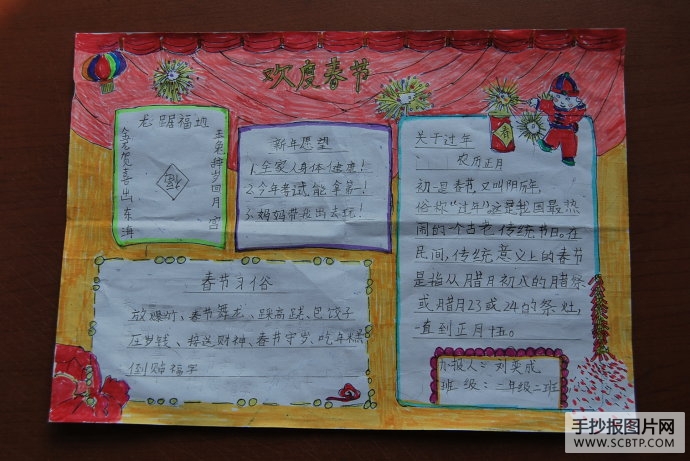 欢度春节
龙踞福地
金龙贺喜出东海
玉兔辞岁回月宫
福
新年愿望
1.全家人身体健康!
2.今年考试能拿第一!
3.妈妈带我出去玩!
关于过年
农历正月
初一是春节,又叫阴历年,
俗称"过年"。这是我国最热
闹的一个古老传统节日。在
民间,传统意义上的春节
是指从腊月初八的腊祭
或腊月23或24的祭灶,
一直到正月十五。
春节习俗
放爆竹、春节舞龙、踩高跷、包饺子
压岁钱、接送财神、春节守岁、吃年糕
倒贴福字
办报人:刘奕成
班级:二年级二班
手抄报图片网
WWW.SCBTP.COM